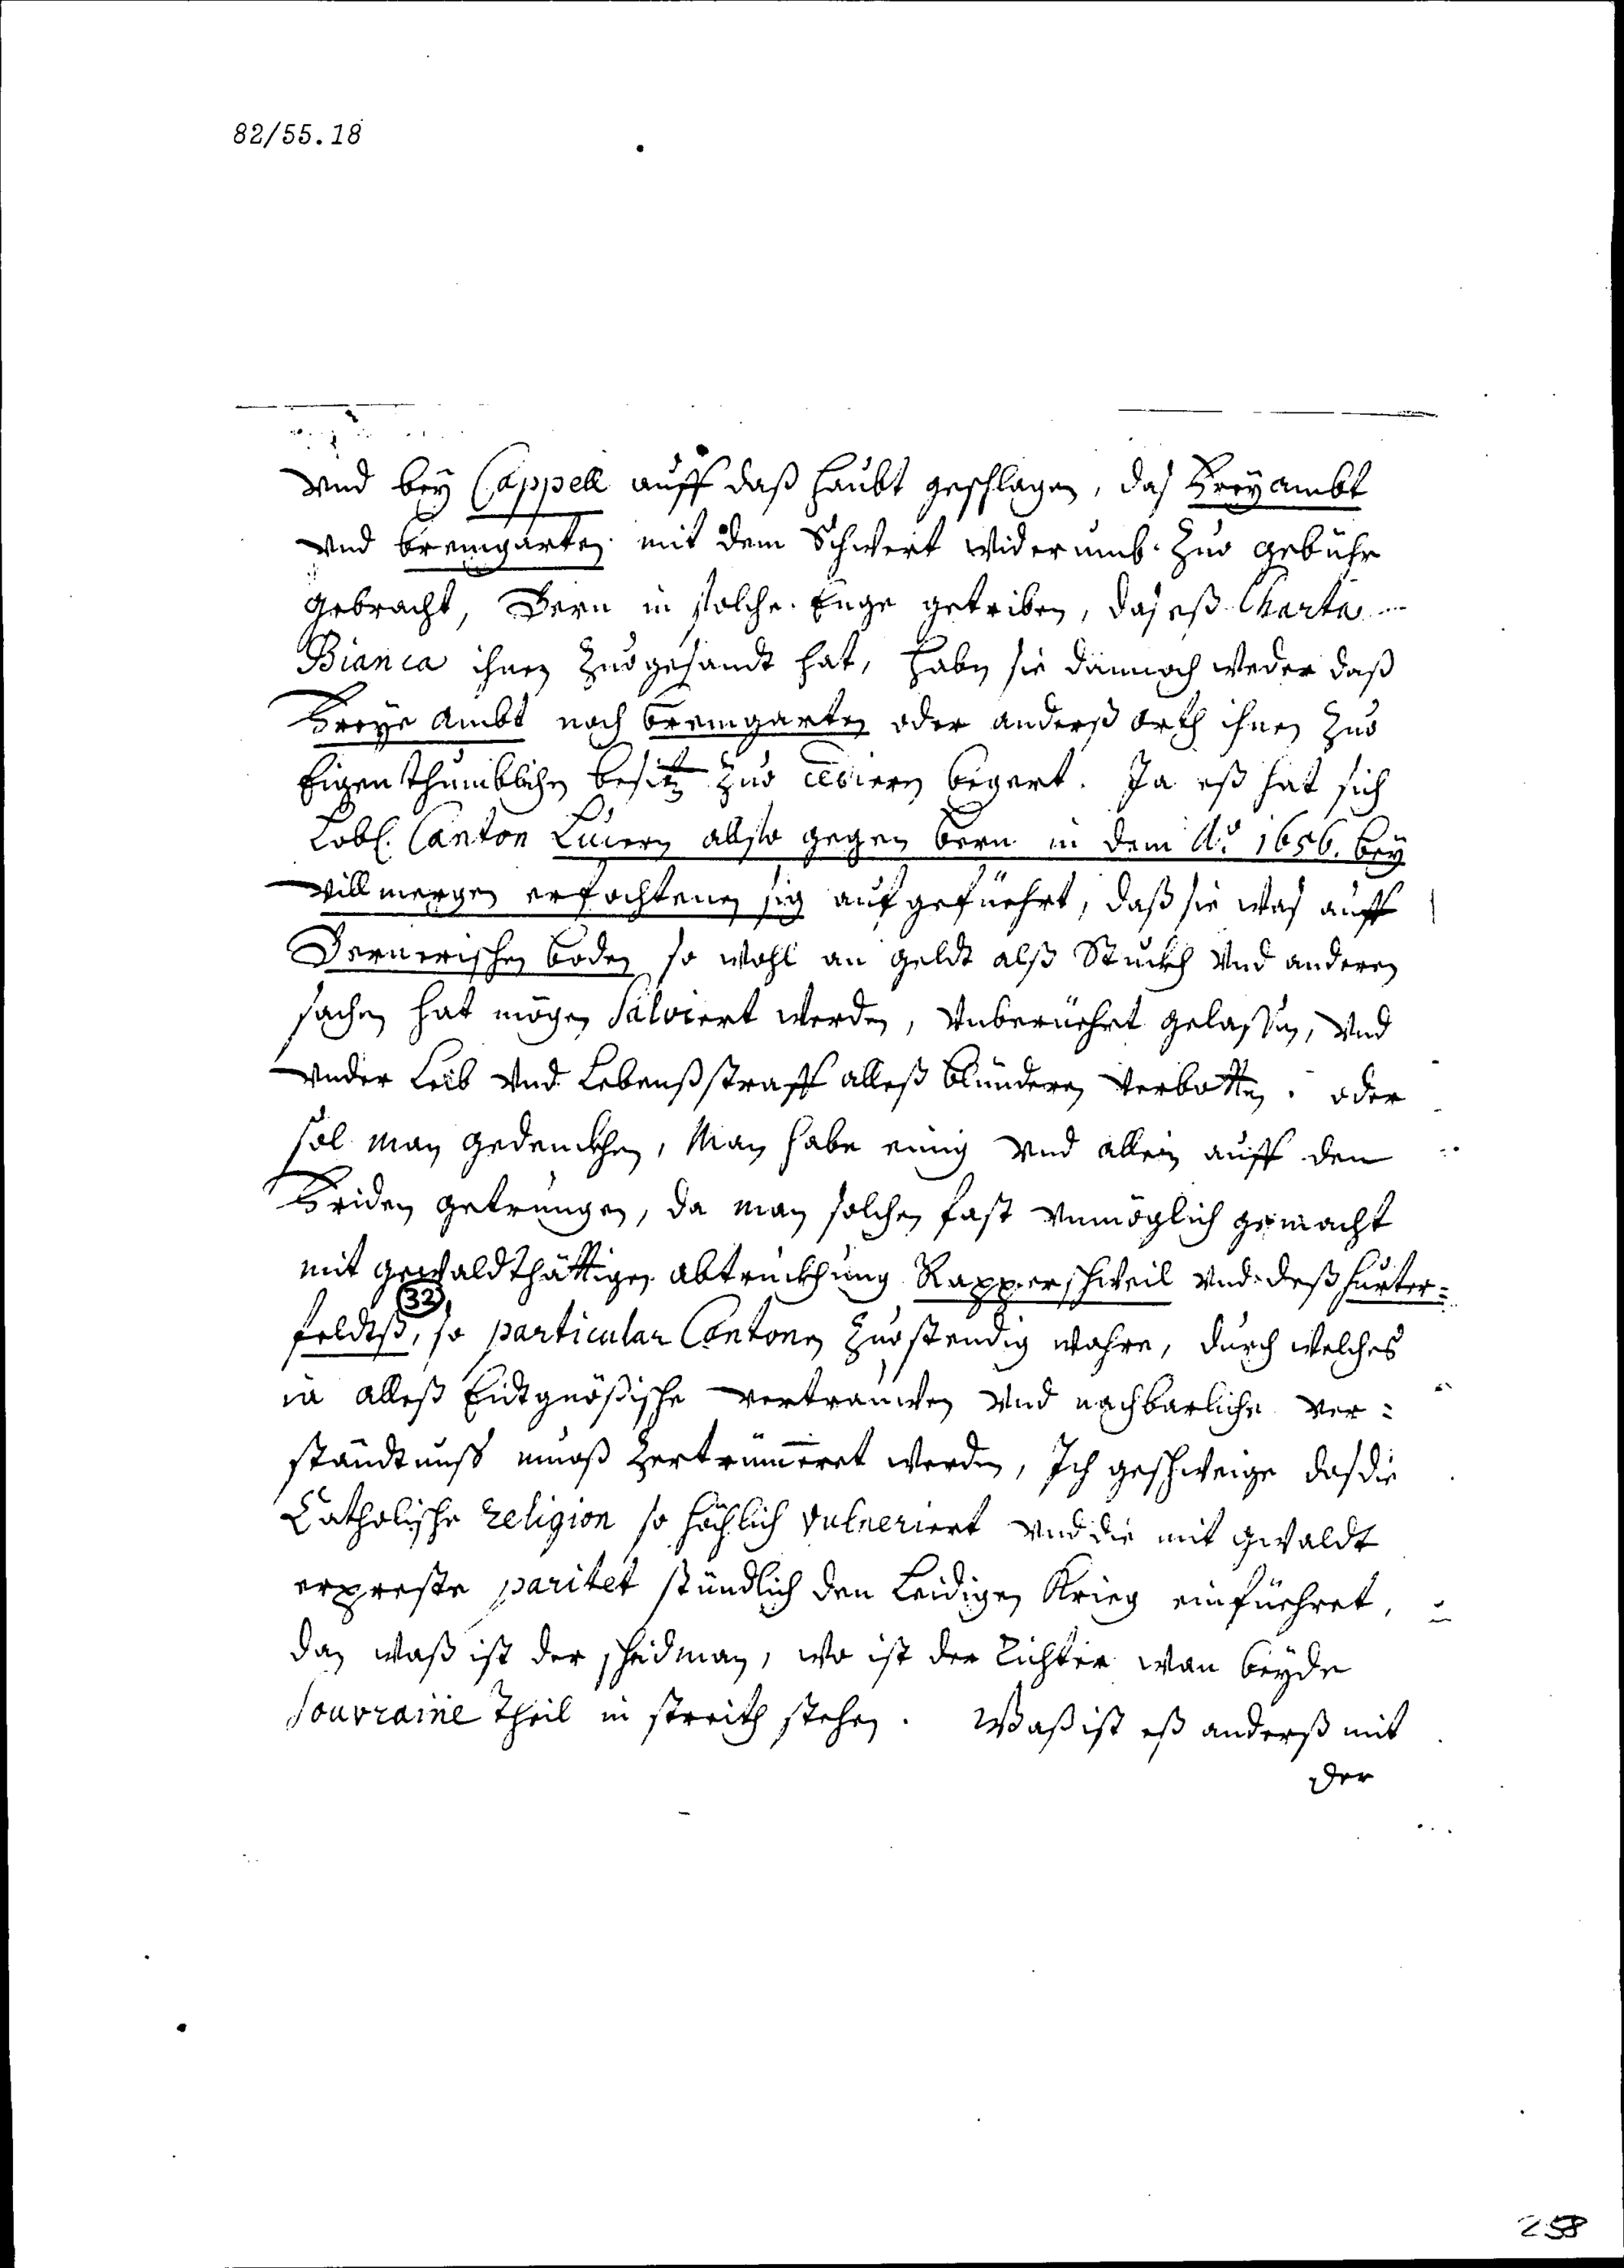 82/55.18
Vnd bey Cappell auff daß haubt geschlagen, das Freyambt
vnd bremgarten mit dem Schwert widerumb Zuo gebühr
gebracht, Bern in solche Enge getriben, das eß Charta
Bianca ihnen Zuogesandt hat, haben sie dannoch weder daß
Freye Ambt noch bremgarten oder anderß orth ihnen Zuo
Eigenthumblichen besitz Zuo cedieren begert. Ja eß hat sich
Lobl. Canton Lucern allso gegen bern in dem A.º 1656. bey
villmergen erfochtenen sig aufgefüehrt, daß sie was auff
Bernerischen boden so wohl an geldt alß Stuckh Vnd anderen
sachen hat mögen Salviert werden, Vnberüehrt gelassen, Vnd
vnder Leib Vnd Lebenßstraff alleß blünderen Verbotten. oder
sol man gedenckhen, Man habe einig Vnd allein auff den
Friden getrungen, da man solchen fast Vnmöglich gemacht
mit gewaldthättiger abtruckhung Rapperschweil Vnd deß hurter=
32
feldtß, so particular Cantonen Zuostendig wahre, durch welches
ia alleß Eidtgnößische vertrauwen Vnd nachbarliche ver=
ständtnuß muoß Zertrümmeret werden, Ich geschweige das die
Catholische religion so höchlich vulneriert Vnd die mit gwaldt
erpreste paritet stündlich den Leidigen Krieg einfüehret,
dan waß ist der scheidman, wo ist der Richter wan beyde
Souvraine Theil in streith stehen. Waß ist eß anderß mit
der
258